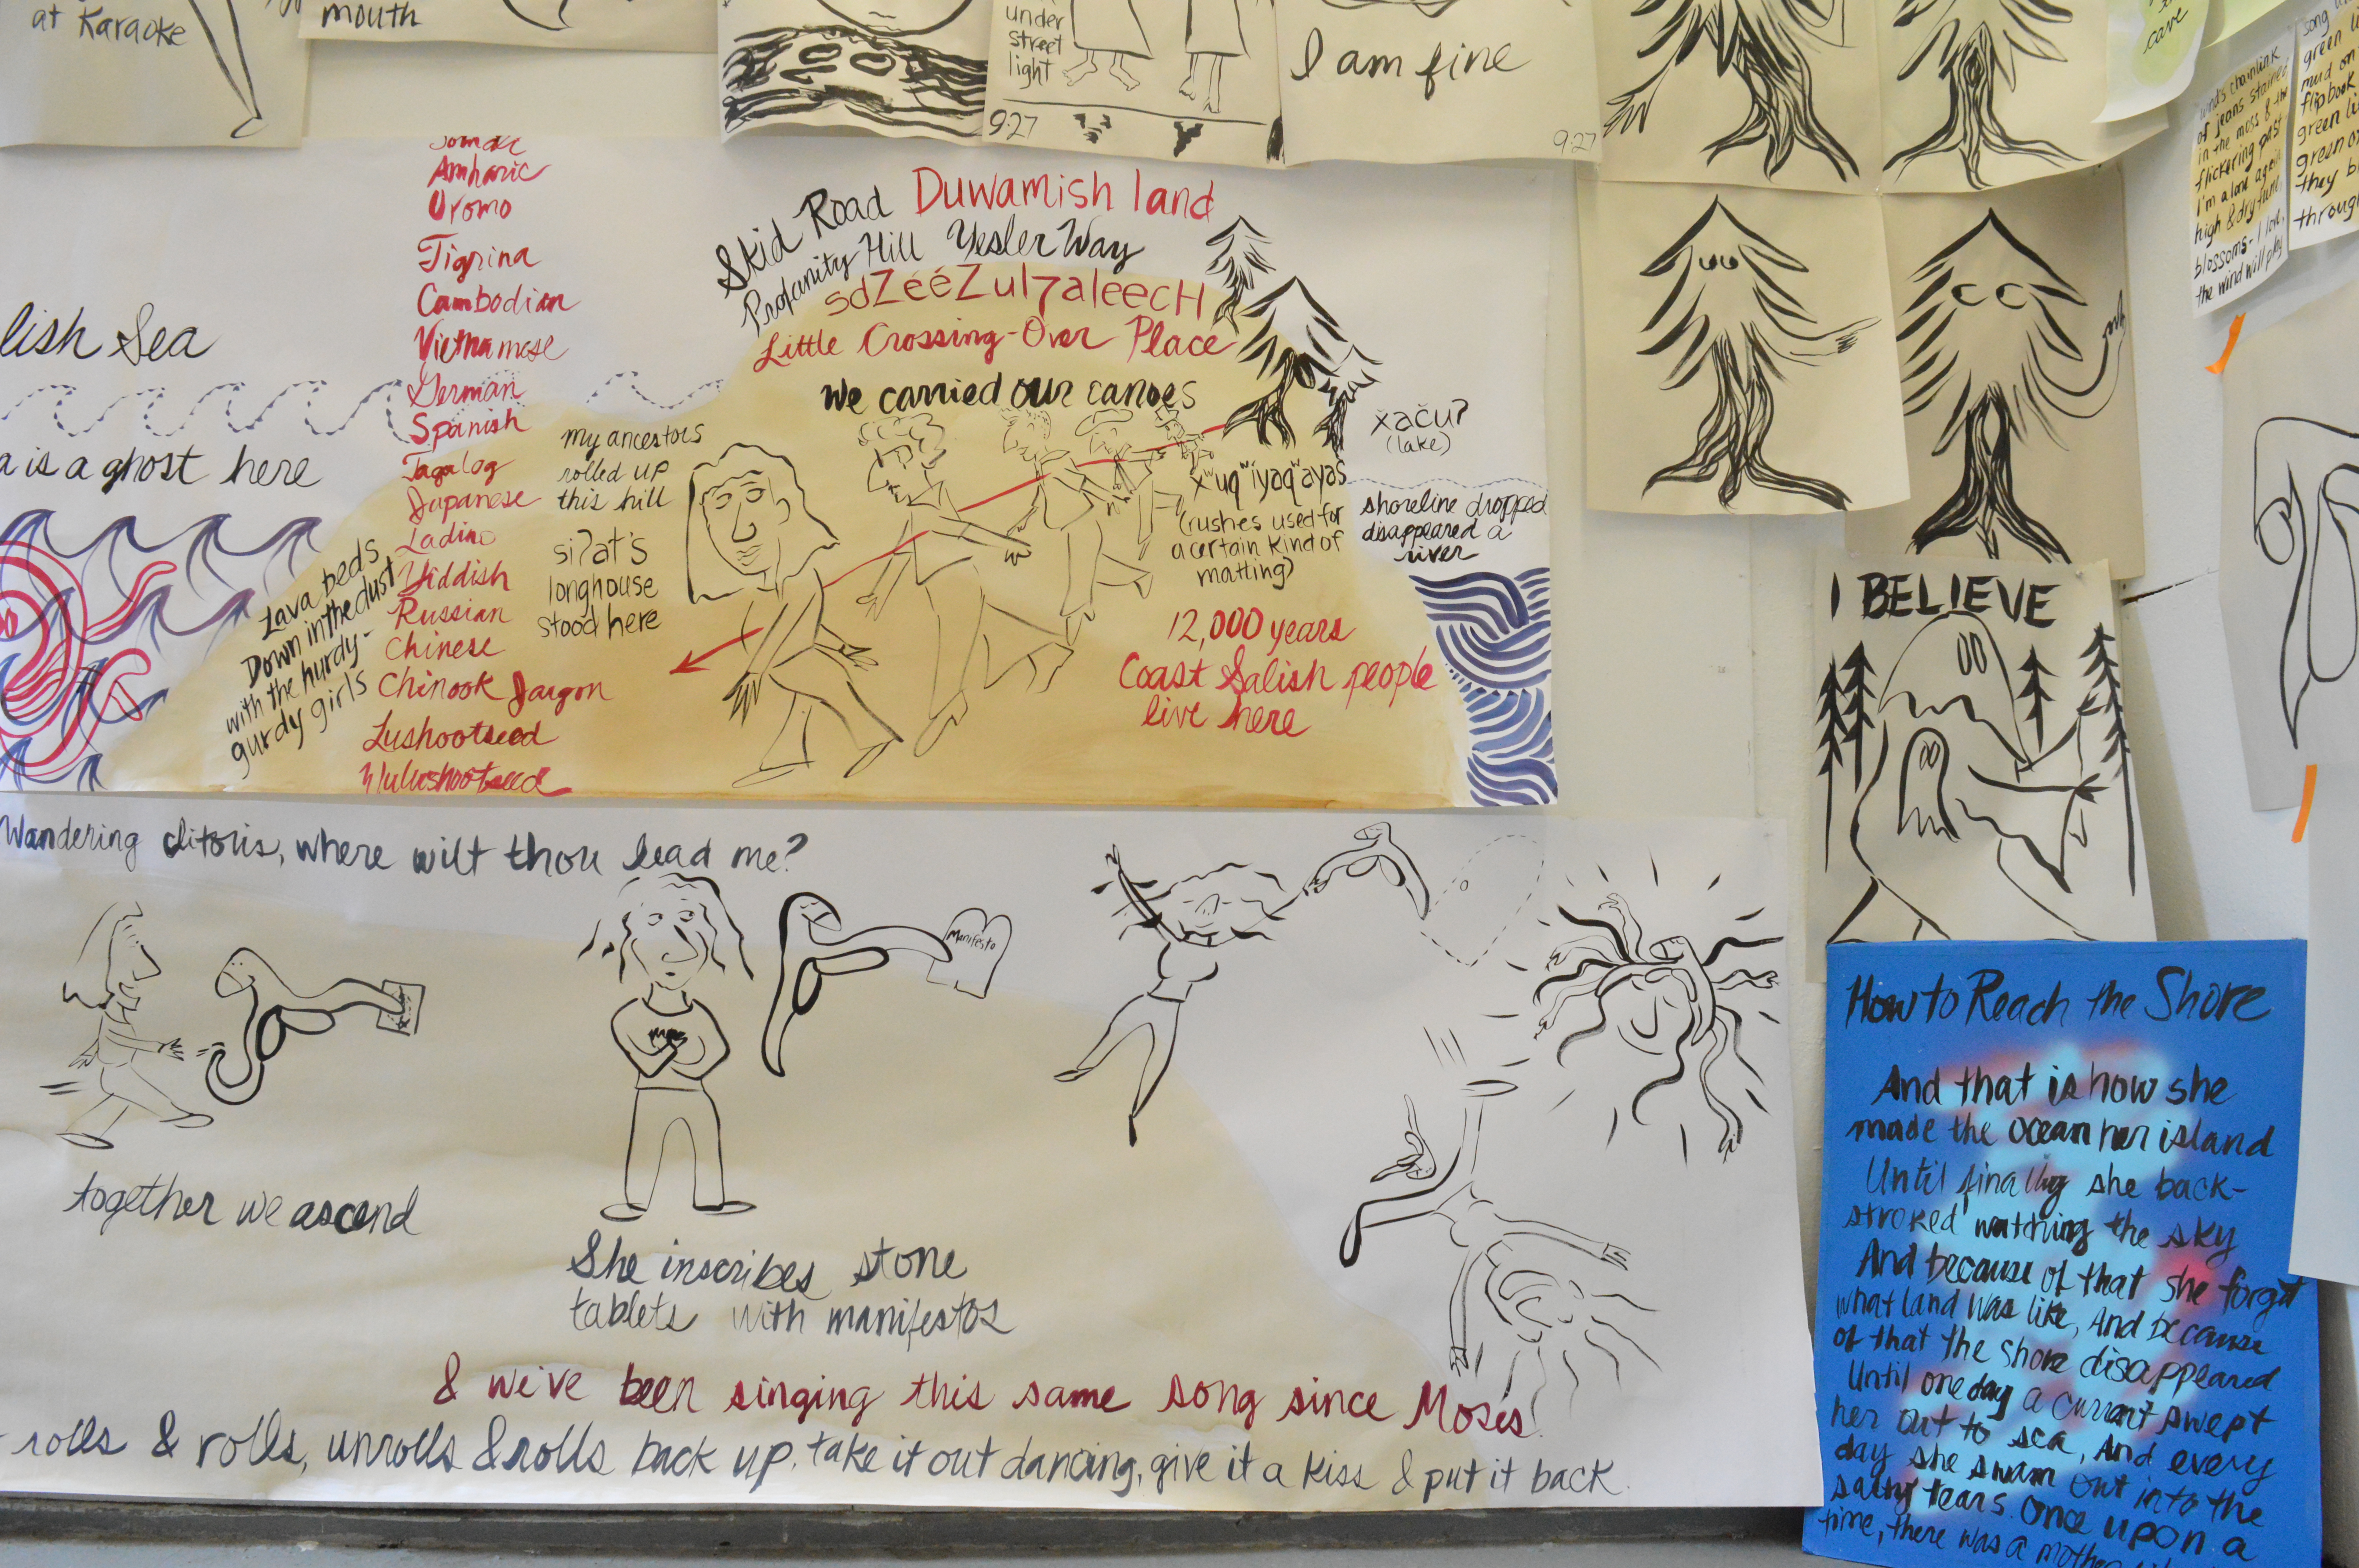 at Karaoke
mouth
under
street
light
9:27
I am fine
9:27
care
of jeans stained
in the moss & the
flickering past
I'm alone again
high & dry
blossoms - I love
the wind will play
song
green
mud on
flipbook
green
green
they
through
lish Sea
a is a ghost here
Amharic
Oromo
Tigrina
Cambodian
Vietnamese
German
Spanish
Tagalog
Japanese
Ladino
Yiddish
Russian
Chinese
Chinook Jargon
Lushootseed
Whulshootseed
Lava beds
Down in the dust
with the hurdy-
gurdy girls
my ancestors
rolled up
this hill
si?at's
longhouse
stood here
Skid Road Duwamish land
Profanity Hill Yesler Way
sdZééZul7aleecH
Little Crossing-Over Place
We carried our canoes
x̌aču?
(lake)
x̌ʷuqʷiyaqʷayaš
(rushes used for
a certain kind of
matting)
shoreline dropped
disappeared a
river
12,000 years
Coast Salish people
live here
I BELIEVE
Wandering clitoris, where wilt thou lead me?
Manifesto
together we ascend
She inscribes stone
tablets with manifestos
& we've been singing this same song since Moses
rolls & rolls, unrolls & rolls back up, take it out dancing, give it a kiss & put it back.
How to Reach the Shore
And that is how she
made the ocean her island
Until finally she back-
stroked watching the sky
And because of that she forgot
what land was like, And because
of that the shore disappeared
Until one day a current swept
her out to sea, And every
day she swam out into the
salty tears. Once upon a
time, there was a mother